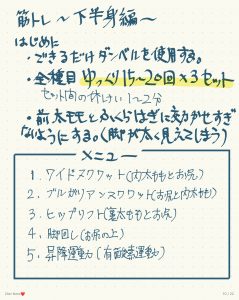 筋トレ〜下半身編〜
はじめに
・できるだけダンベルを使用する。
・全種目 ゆっくり15〜20回×3セット
セット間の休けい1〜2分
・前太ももとふくらはぎに効かせすぎ
ないようにする。(脚が太く見えてしまう)
メニュー
1. ワイドスクワット(内太ももとお尻)
2. ブルガリアンスクワット(お尻と内太もも)
3. ヒップリフト(裏太ももとお尻)
4. 脚回し(お尻の上)
5. 昇降運動(有酸素運動)